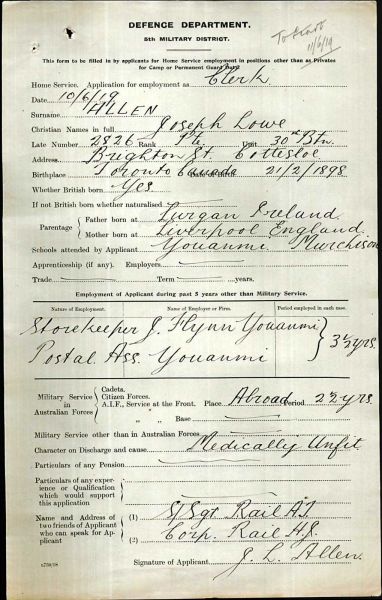 DEFENCE DEPARTMENT.
5th MILITARY DISTRICT.
11/6/19
This form to be filled in by applicants for Home Service employment in positions other than as Privates
for Camp or Permanent Guard Duty.
Home Service. Application for employment as Clerk
Date 10/6/19
Surname ALLEN
Christian Names in full Joseph Lowe
Late Number 2826 Rank Pte Unit 30th Btn.
Address Brighton St. Cottesloe
Birthplace Toronto Canada 21/2/1898
Whether British born Yes
If not British born whether naturalised
Parentage { Father born at Lurgan Ireland.
Mother born at Liverpool England
Schools attended by Applicant Youanmi Murchison
Apprenticeship (if any). Employers
Trade Term years.
Employment of Applicant during past 5 years other than Military Service.
Nature of Employment. Name of Employer or Firm. Period employed in each case.
Storekeeper J. Flynn Youanmi
Postal Ass. Youanmi } 3½ yrs.
Military Service in Australian Forces { Cadets.
Citizen Forces.
A.I.F., Service at the Front. Place Abroad Period 2½ yrs.
" " Base
Military Service other than in Australian Forces
Character on Discharge and cause Medically Unfit
Particulars of any Pension
Particulars of any experience or Qualification which would support this application
Name and Address of two friends of Applicant who can speak for Applicant
(1) S/Sgt Rail
(2) Corp. Rail
Signature of Applicant J. L. Allen.